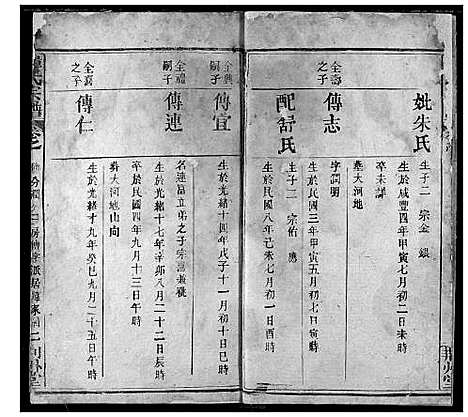 妣朱氏
生於咸豐四年甲寅七月初二日未時
卒未詳
生子二 宗金 銀
全壽之子
傳志
生於民國三年甲寅五月初七日寅時
字潤明
墓大河地
配舒氏
生於民國八年己未七月初一日
生子二 宗佑 應
全興嗣子
傳宜
生於光緒十四年戊子十一月初十日巳時
名連富立弟之子宗喜兼祧
全禮嗣子
傳連
生於光緒十七年辛卯八月二十二日辰時
卒於民國四年九月十三日午時
葬大河地山向
全喜之子
傳仁
生於光緒十九年癸巳九月二十五日午時
氏宗譜